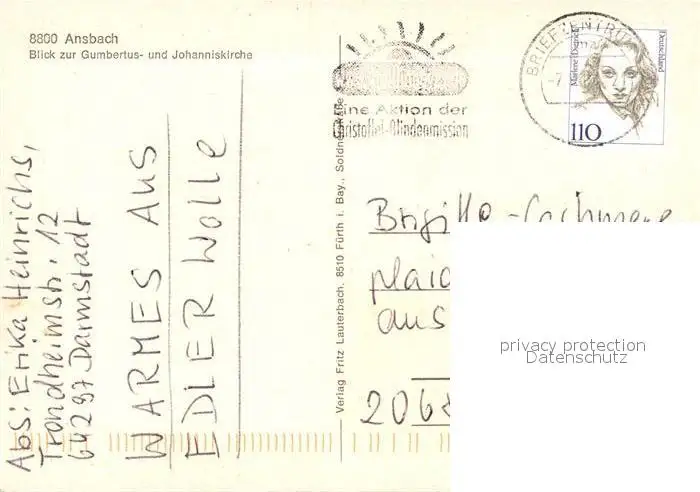 8800 Ansbach
Blick zur Gumbertus- und Johanniskirche
Eine Aktion der
Christoffel-Blindenmission
BRIEFZENTRUM
Marlene Dietrich
Deutschland
110
Abs: Erika Heinrichs,
Trondheimstr. 12
64297 Darmstadt
WARMES AUS
EDLER Wolle
Verlag Fritz Lauterbach, 8510 Fürth i. Bay., Soldnerstraße
Brigitte-Cashmere
plaid
aus
2068
privacy protection
Datenschutz